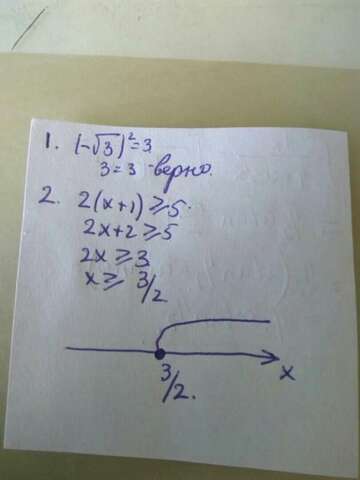 1. (-√3)²=3.
3=3 -верно.
2. 2(x+1)≥5.
2x+2≥5
2x≥3
x≥ 3/2
3/2.
x